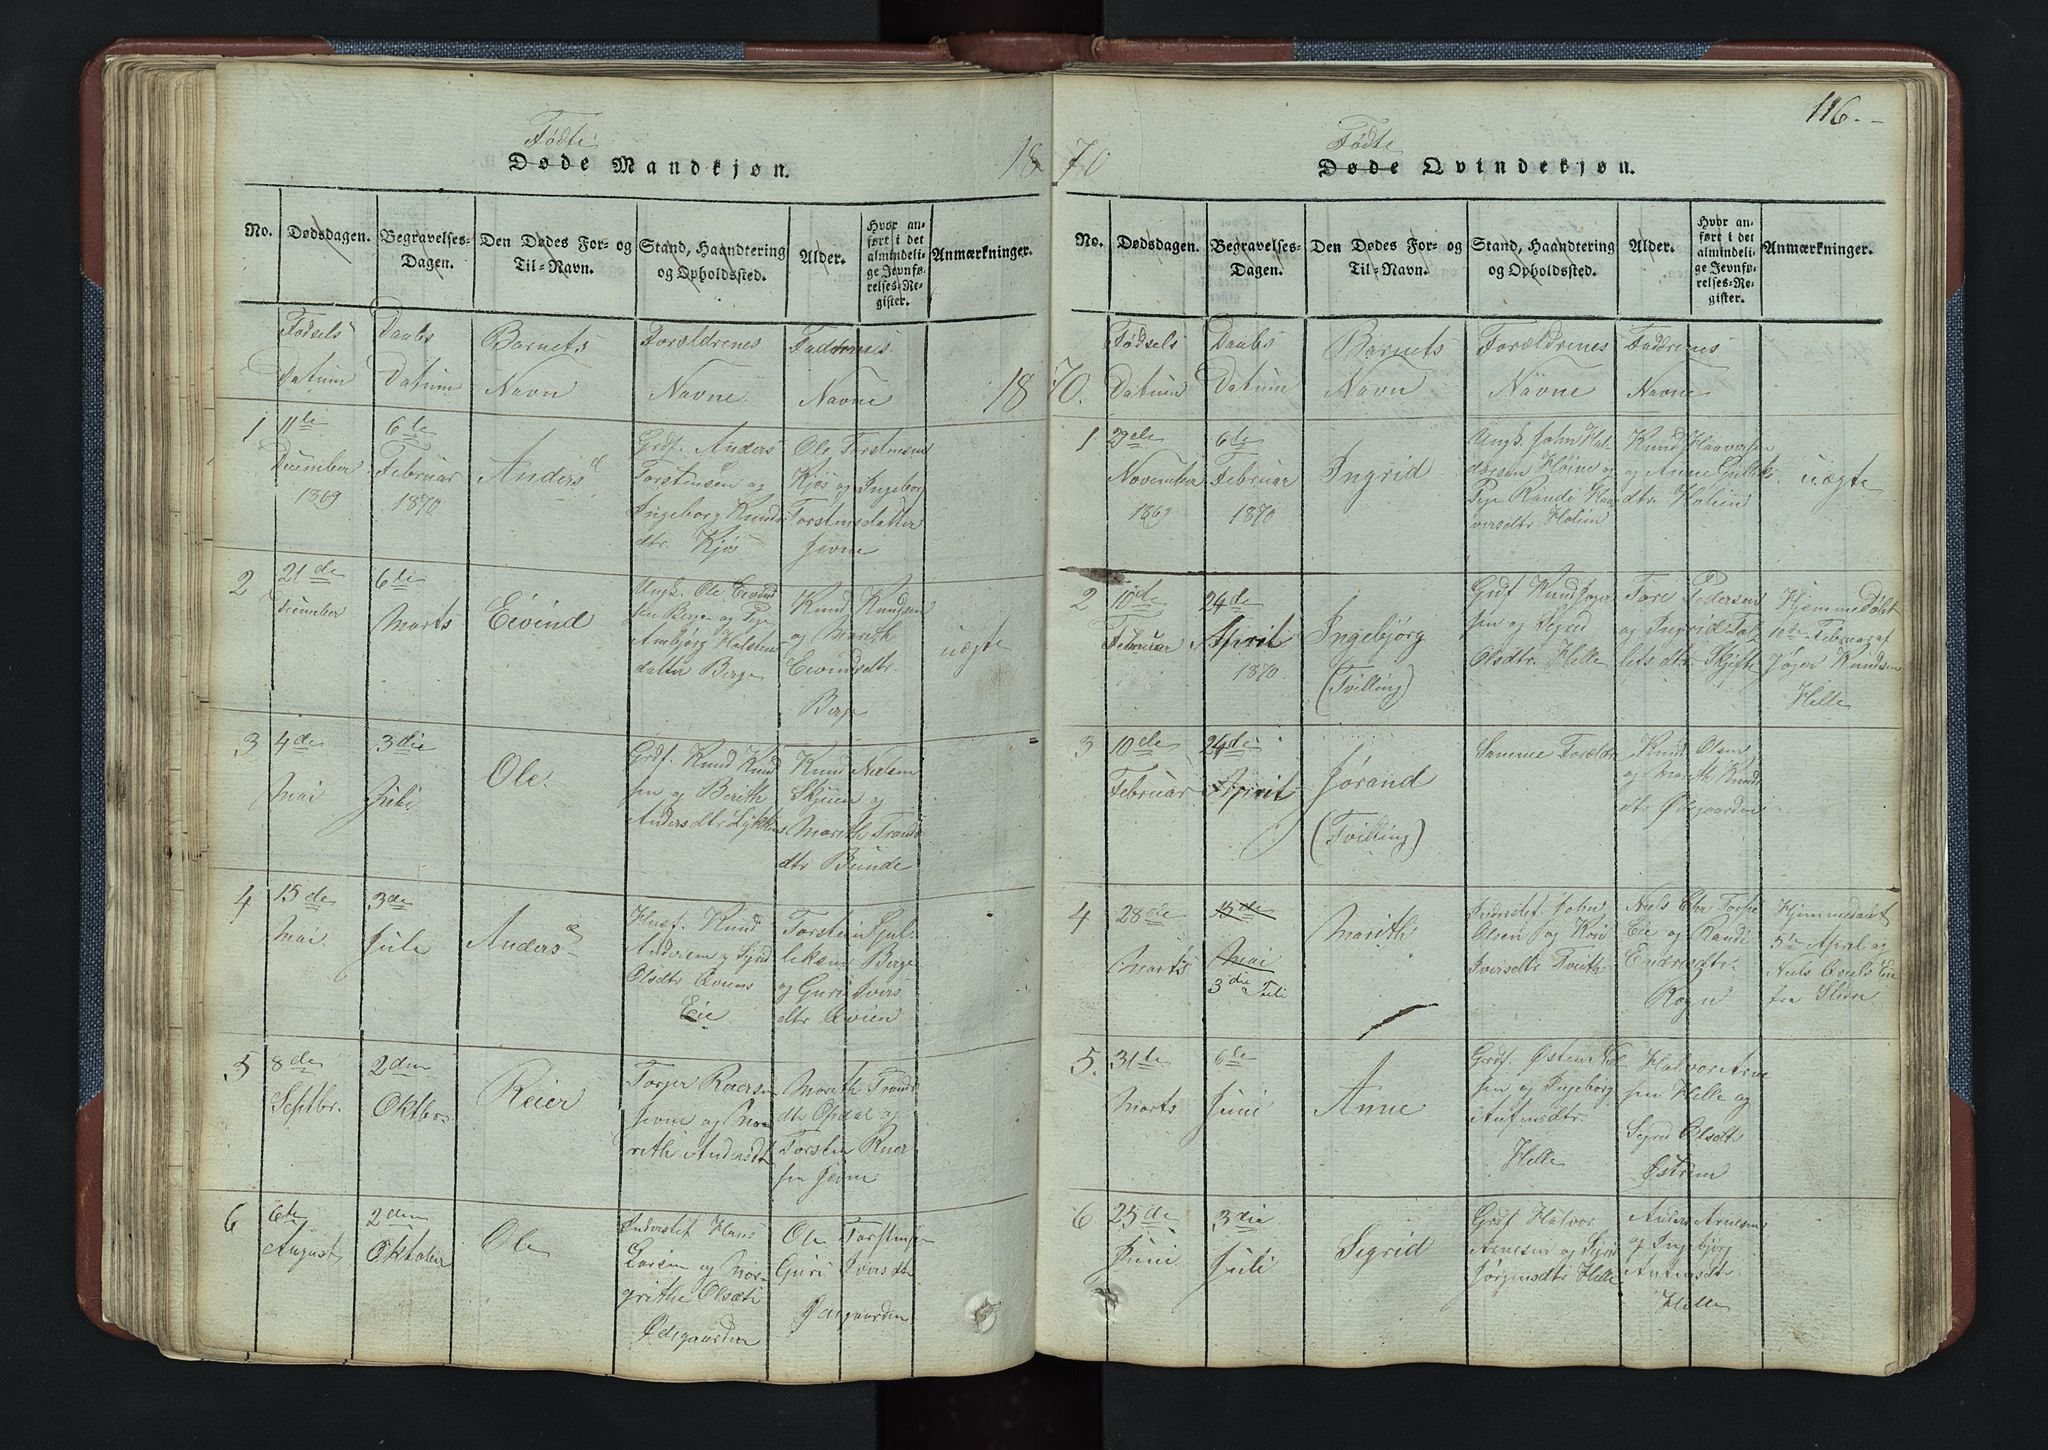 116.-
Fødte
Døde Mandkjøn.
18
No.
Dødsdagen.
Begravelses-
Dagen.
Den Dødes For- og
Til-Navn.
Stand, Haandtering
og Opholdssted.
Alder.
Hvor an-
ført i det
almindeli-
ge Jevnfø-
relses-Re-
gister.
Anmærkninger.
Fødsels
Datum
Daabs
Datum
Barnets
Navn
Forældrenes
Navne
Faddernes
Navne
18
1
11te
December
1869
6te
Februar
1870
Anders
Grdf. Anders
Torstensen og
Ingeborg Knuds
dtr. Kjøs
Ole Torstensen
Kjøs og Ingeborg
Torstensdatter
Jevne
2
21de
December
6te
Marts
Eivind
Ungk. Ole Eivind
sen Berge og Pige
Ambjørg Halsten
datter Berge
Knud Knudsen
og Marith
Eivindsdtr.
Berge
uægte
3
4de
Mai
3die
Juli
Ole
Grdf. Knud Knud
sen og Berith
Andersdtr Lykken
Knud Nielsen
Skjien og
Marith Trands
dtr Bunde
4
15de
Mai
3die
Jule
Anders
Hust. Knud
Andersen og Sigrid
Olsdtr Qviens
Eie
Torstein Gul-
leksen Berge
og Guri Ivers
dtr Qvien
5
8de
Septbr.
2den
Oktbr.
Reier
Torger Reiersen
Jevne og Ma
rith Andersdt
Marith Trands
dtr Opdal og
Torsten Reier
sen Jevne
6
6te
August
2den
Oktober
Ole
Inderstet Hans
Larsen og Mar-
grithe Olsdtr
Ødegaarden
Ole Torstensen
Guri Iversdtr
Ødegaarden
70
Fødte
Døde Qvindekjøn.
No.
Dødsdagen.
Begravelses-
Dagen.
Den Dødes For- og
Til-Navn.
Stand, Haandtering
og Opholdssted.
Alder.
Hvor an-
ført i det
almindeli-
ge Jevnfø-
relses-Re-
gister.
Anmærkninger.
70.
Fødsels
Datum
Daabs
Datum
Barnets
Navn
Forældrenes
Navne
Faddrenes
Navne
1
29de
November
1869
6te
Februar
1870
Ingrid
Ungk. John Hal
dorsen Høine og
Pige Randi Haa
versdtr Holien
Knud Haaversen
og Anne Gulleks
dtr Holien
uægte
2
10de
Februar
24de
April
1870
Ingebjørg
(Tvilling)
Grdf Knud Jøger
sen og Sigrid
Olsdtr. Helle
Tore Pedersen
og Ingrid Tol
lefsdtr. Skifte
Hjemmedøbt
10de Februar af
Jøger Knudsen
Helle
3
10de
Februar
24de
April
Jørand
(Tvilling)
Samme Forældre
Knud Olsen
og Marith Knuds
dtr Ødegaarden
4
28de
Marts
15de
Mai
3die Juli
Marith
Inderstet John
Olsen og Kari
Iversdtr Tveith
Niels Chr Torpe
Eie og Randi
Endresdtr.
Rogn
Hjemmedøbt
5te April og
Niels Qviels Eie
fra Slidre
5.
31te
Marts
6te
Juni
Anne
Grdf. Østen Niel
sen og Ingeborg
Anfinsdtr.
Helle
Halvor Arne
sen Helle og
Sigrid Olsdtr
Østrem
6
25de
Juni
3die
Juli
Sigrid
Grdf Halvor
Arnesen og Sigrid
Jørgensdtr Helle
Anders Arnesen
og Ingebjørg
Anfinsdtr.
Helle